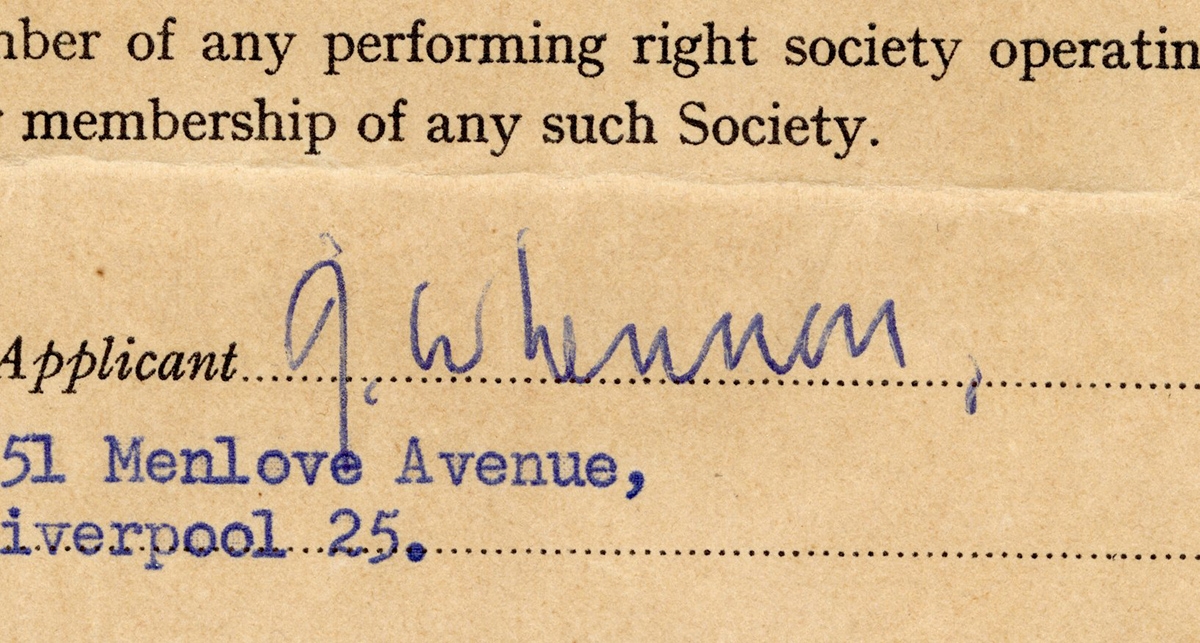 nber of any performing right society operatin
membership of any such Society.
Applicant J. W Lennon,
51 Menlove Avenue,
iverpool 25.